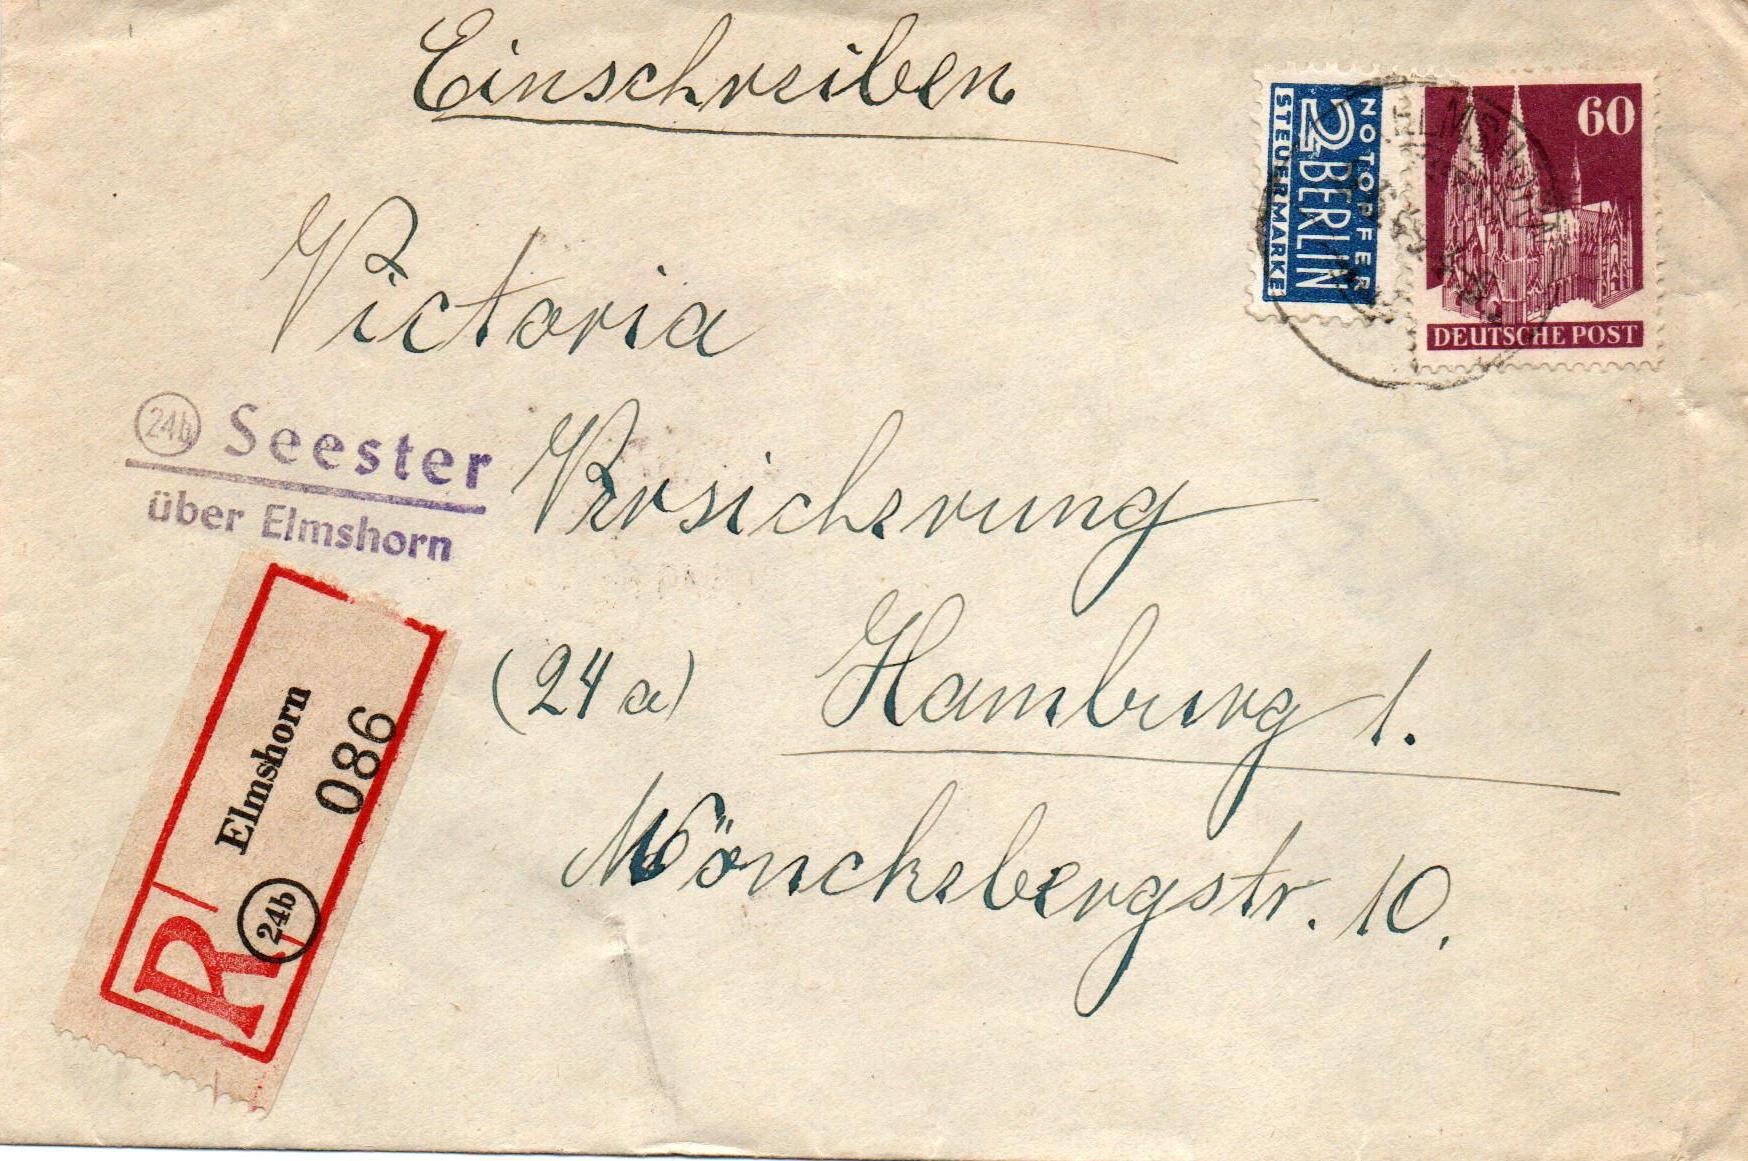 Einschreiben
60
NOTOPFER
2 BERLIN
STEUERMARKE
DEUTSCHE POST
Victoria
24b Seester
über Elmshorn
Versicherung
(24a) Hamburg 1.
Mönckebergstr. 10.
R
24b
Elmshorn
086